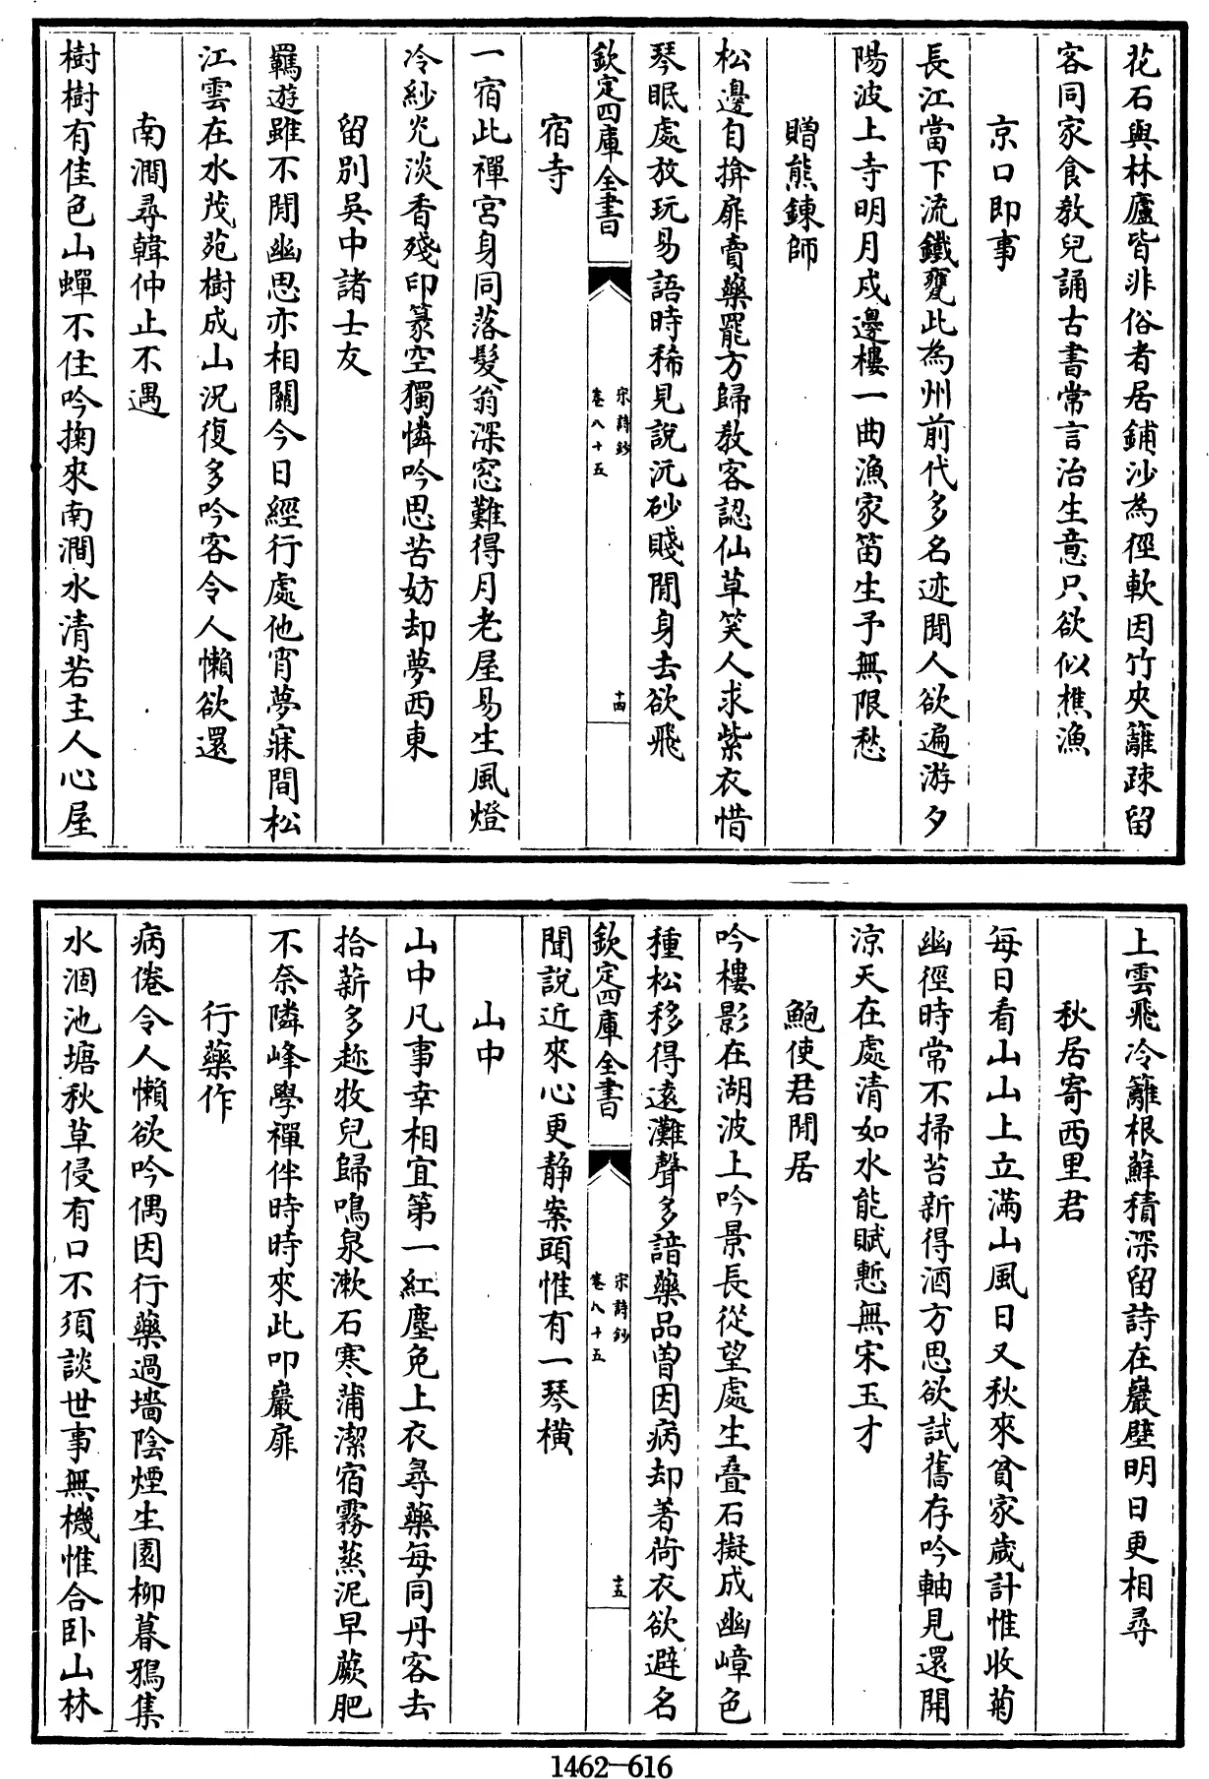 花石與林廬皆非俗者居鋪沙為徑軟因竹夾籬疎留
客同家食教兒誦古書常言治生意只欲似樵漁
京口即事
長江當下流鐵甕此為州前代多名迹閒人欲遍游夕
陽波上寺明月戍邊樓一曲漁家笛生予無限愁
贈熊鍊師
松邊自揜扉賣藥罷方歸教客認仙草笑人求紫衣惜
琴眠處放玩易語時稀見說沅砂賤閒身去欲飛
欽定四庫全書
宋詩鈔
卷八十五
十四
宿寺
一宿此禪宮身同落髮翁深窓難得月老屋易生風燈
冷紗光淡香殘印篆空獨憐吟思苦妨却夢西東
留別吳中諸士友
羈遊雖不閒幽思亦相關今日經行處他宵夢寐間松
江雲在水茂苑樹成山況復多吟客令人懶欲還
南澗尋韓仲止不遇
樹樹有佳色山蟬不住吟掬來南澗水清若主人心屋
上雲飛冷籬根蘚積深留詩在巖壁明日更相尋
秋居寄西里君
每日看山山上立滿山風日又秋來貧家歲計惟收菊
幽徑時常不掃苔新得酒方思欲試舊存吟軸見還開
涼天在處清如水能賦慙無宋玉才
鮑使君閒居
吟樓影在湖波上吟景長從望處生疊石擬成幽嶂色
種松移得遠灘聲多諳藥品曽因病却著荷衣欲避名
欽定四庫全書
宋詩鈔
卷八十五
十五
聞說近來心更静案頭惟有一琴橫
山中
山中凡事幸相宜第一紅塵免上衣尋藥每同丹客去
拾薪多趂牧兒歸鳴泉漱石寒蒲潔宿霧蒸泥早蕨肥
不奈隣峰學禪伴時時來此叩巖扉
行藥作
病倦令人懶欲吟偶因行藥過墻陰煙生園柳暮鴉集
水涸池塘秋草侵有口不須談世事無機惟合卧山林
1462—616